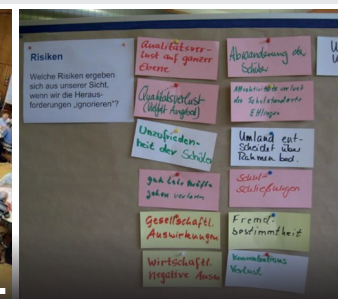 Risiken
Welche Risiken ergeben
sich aus unserer Sicht,
wenn wir die Heraus-
forderungen „ignorieren"?
Qualitätsver-
lust auf ganzer
Ebene
Qualitätsverlust
Angebot)
Unzufrieden-
heit der Schüler
gute
gehen verloren
Gesellschaftl.
Auswirkungen
Wirtschaftl.
negative
Abwanderung der
Schüler
Attraktivitätsverlust
des Schulstandorts
Ettlingen
Umland ent-
scheidet über
Rahmenbed.
Schul-
schließungen
Fremd-
bestimmtheit